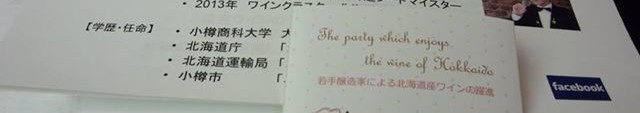 2013年 ワイン
ートマイスター
【学歴・任命】
・小樽商科大学
・北海道庁 「
・北海道運輸局 「
・小樽市 「
The party which enjoys
the wine of Hokkaido
若手醸造家による北海道産ワインの躍進
facebook